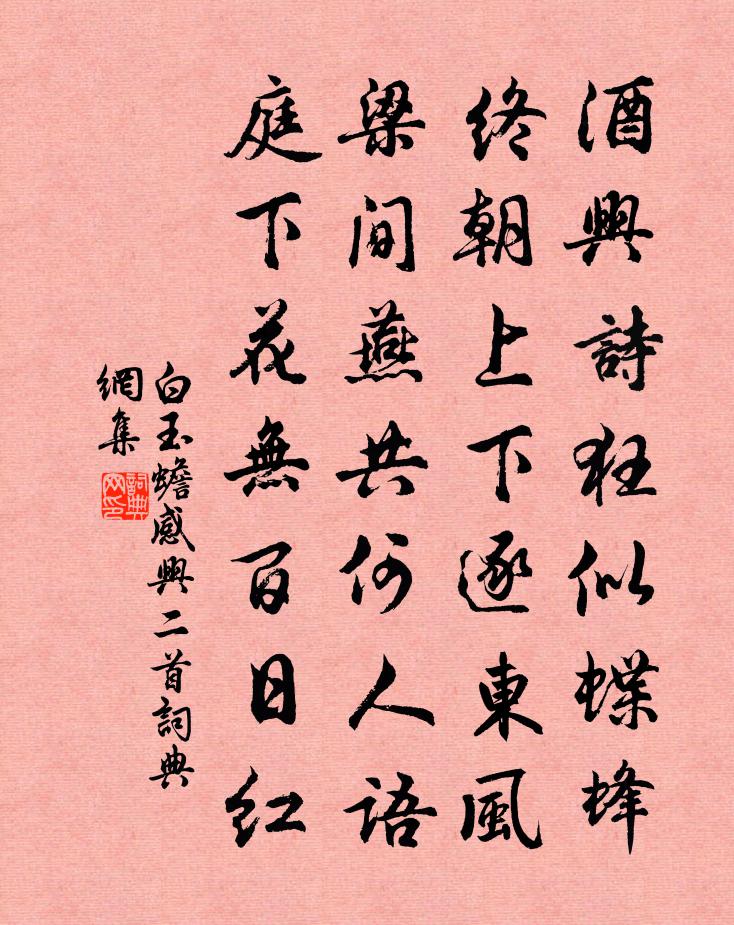 酒興詩狂似蝶蜂
終朝上下逐東風
梁間燕共何人語
庭下花無百日红
白玉蟾感興二首詞典
網集
詞典
网印